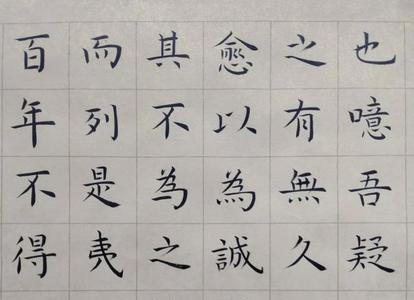 也噫吾疑
之有無久
愈以為誠
其不為之
而列是夷
百年不得